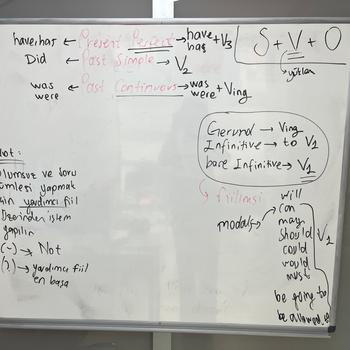 have/has ← Present Perfect → have/has + V3
Did ← Past Simple → V2
was/were ← Past Continuous → was/were + Ving
S + V + O
yüklem
Gerund → Ving
Infinitive → to V1
bare Infinitive → V1
→ fiilimsi
modals →
will
can
may
should
could
would
must
V1
be going to
be allowed to
Not:
olumsuz ve soru
cümlesi yapmak
için yardımcı fiil
üzerinden işlem
yapılır.
(-) → Not
(?) → yardımcı fiil
en başa